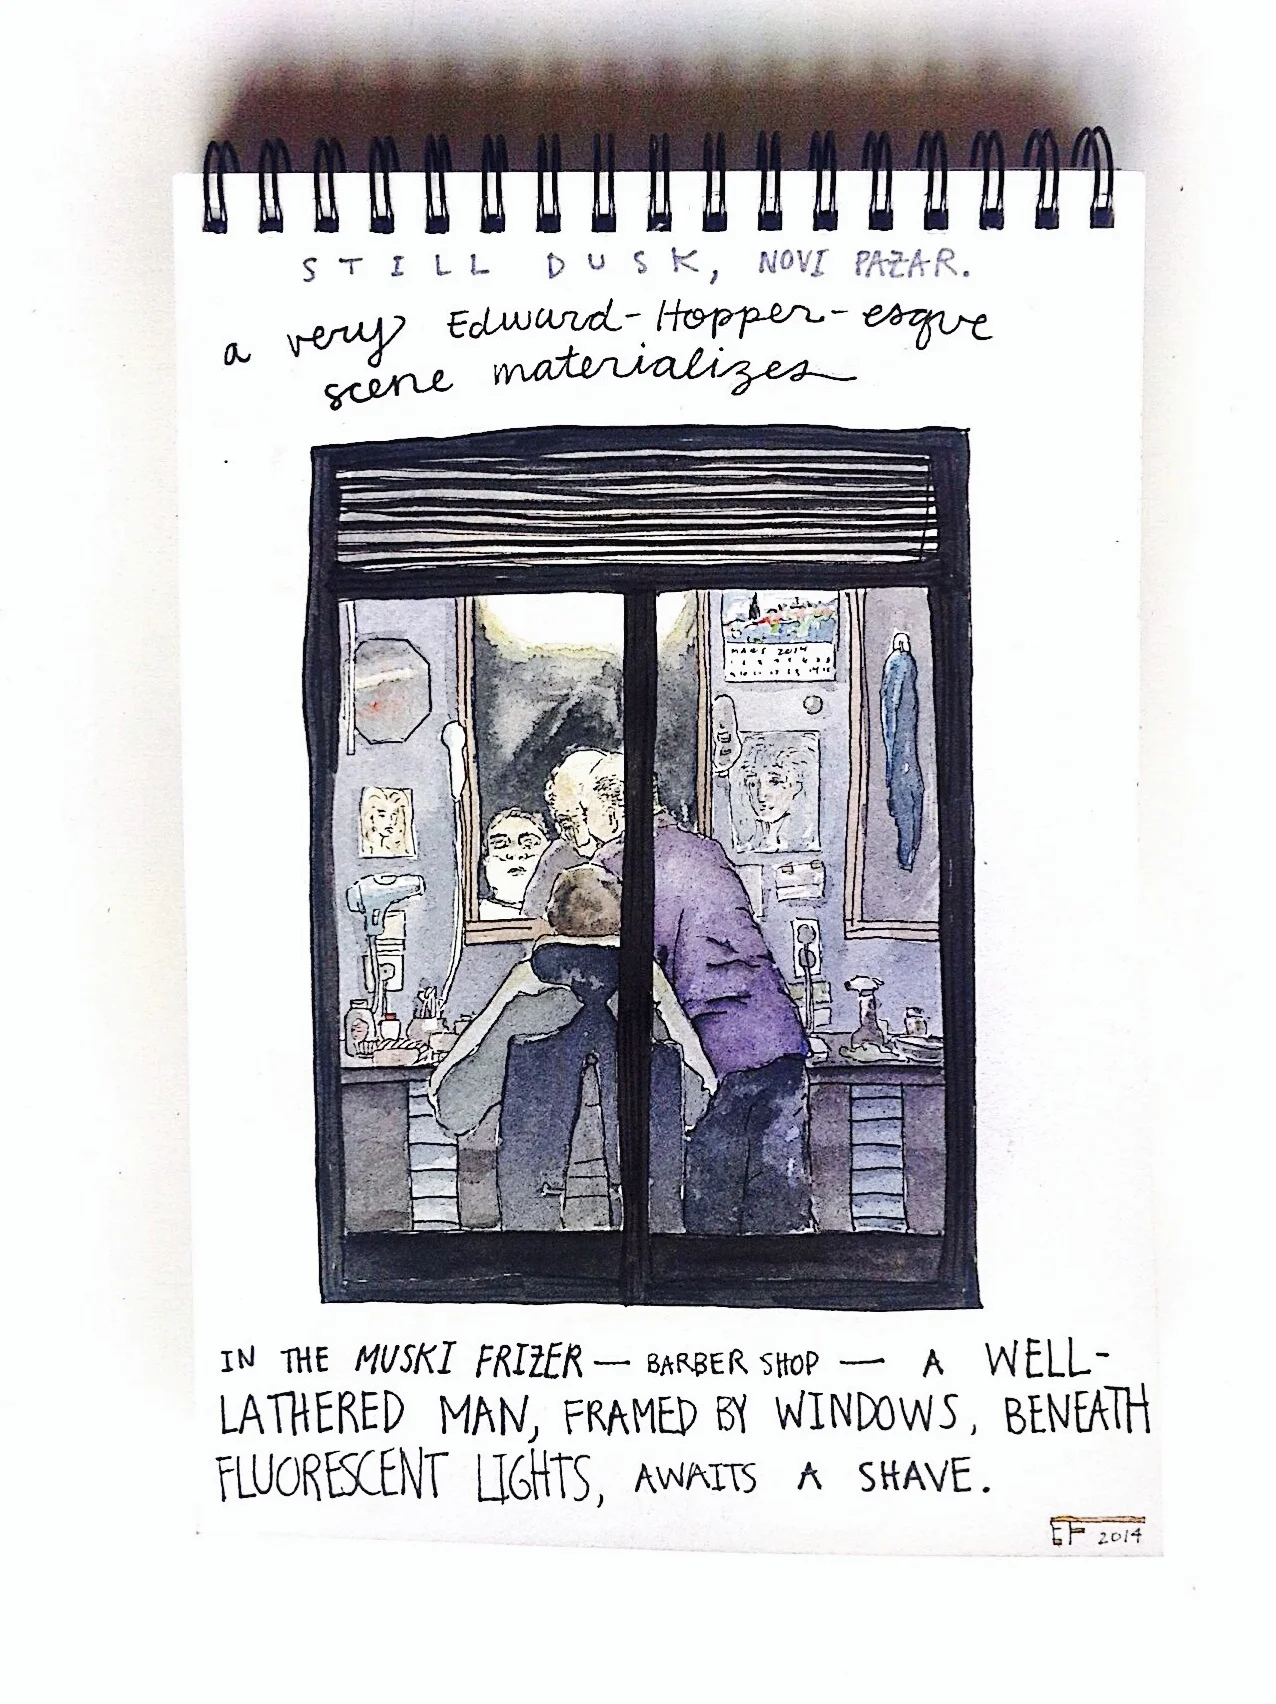 STILL DUSK, NOVI PAZAR.
a very Edward-Hopper-esque
scene materializes
MARS 2014
IN THE MUSKI FRIZER — BARBER SHOP — A WELL-
LATHERED MAN, FRAMED BY WINDOWS, BENEATH
FLUORESCENT LIGHTS, AWAITS A SHAVE.
EF 2014